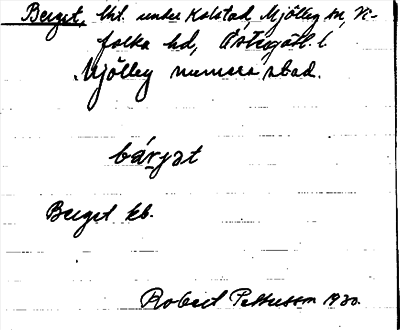 Berget, lht. under Kolstad, Mjölby sn, Vi-
folka hd, Östergötl. l
Mjölby numera stad.
bárjət
Berget kb.
Robert Pettersson 1930.